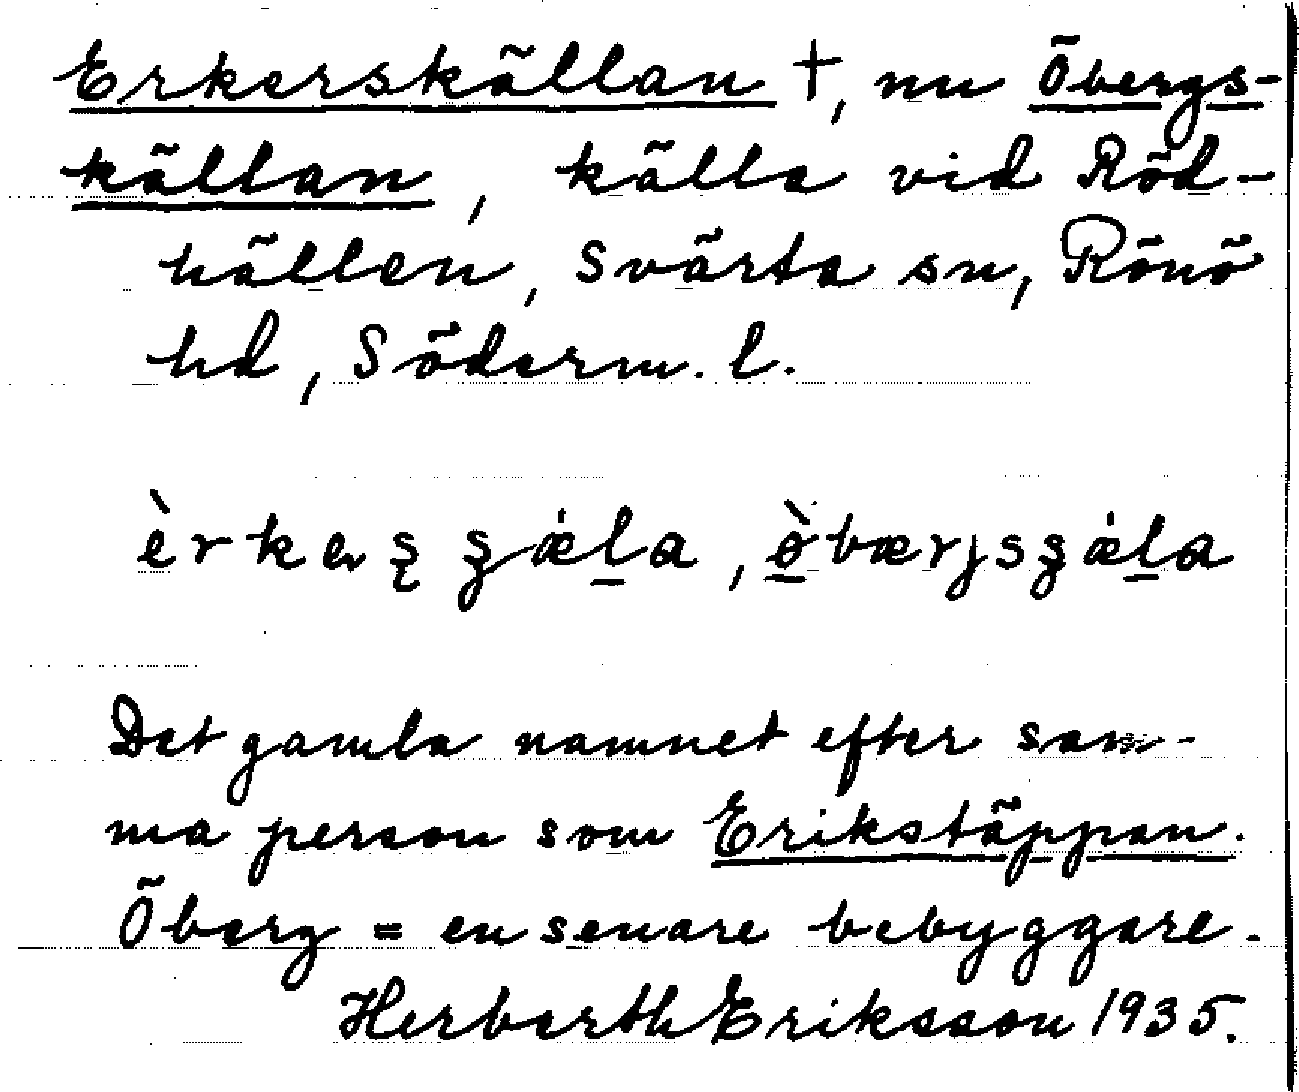 Erkerskällan †, nu Öbergs-
källan, källa vid Röd-
hällen, Svärta sn, Rönö
hd, Söderm. l.
Det gamla namnet efter sam-
ma person som Erikstäppan.
Öberg = en senare bebyggare.
Herberth Eriksson 1935.